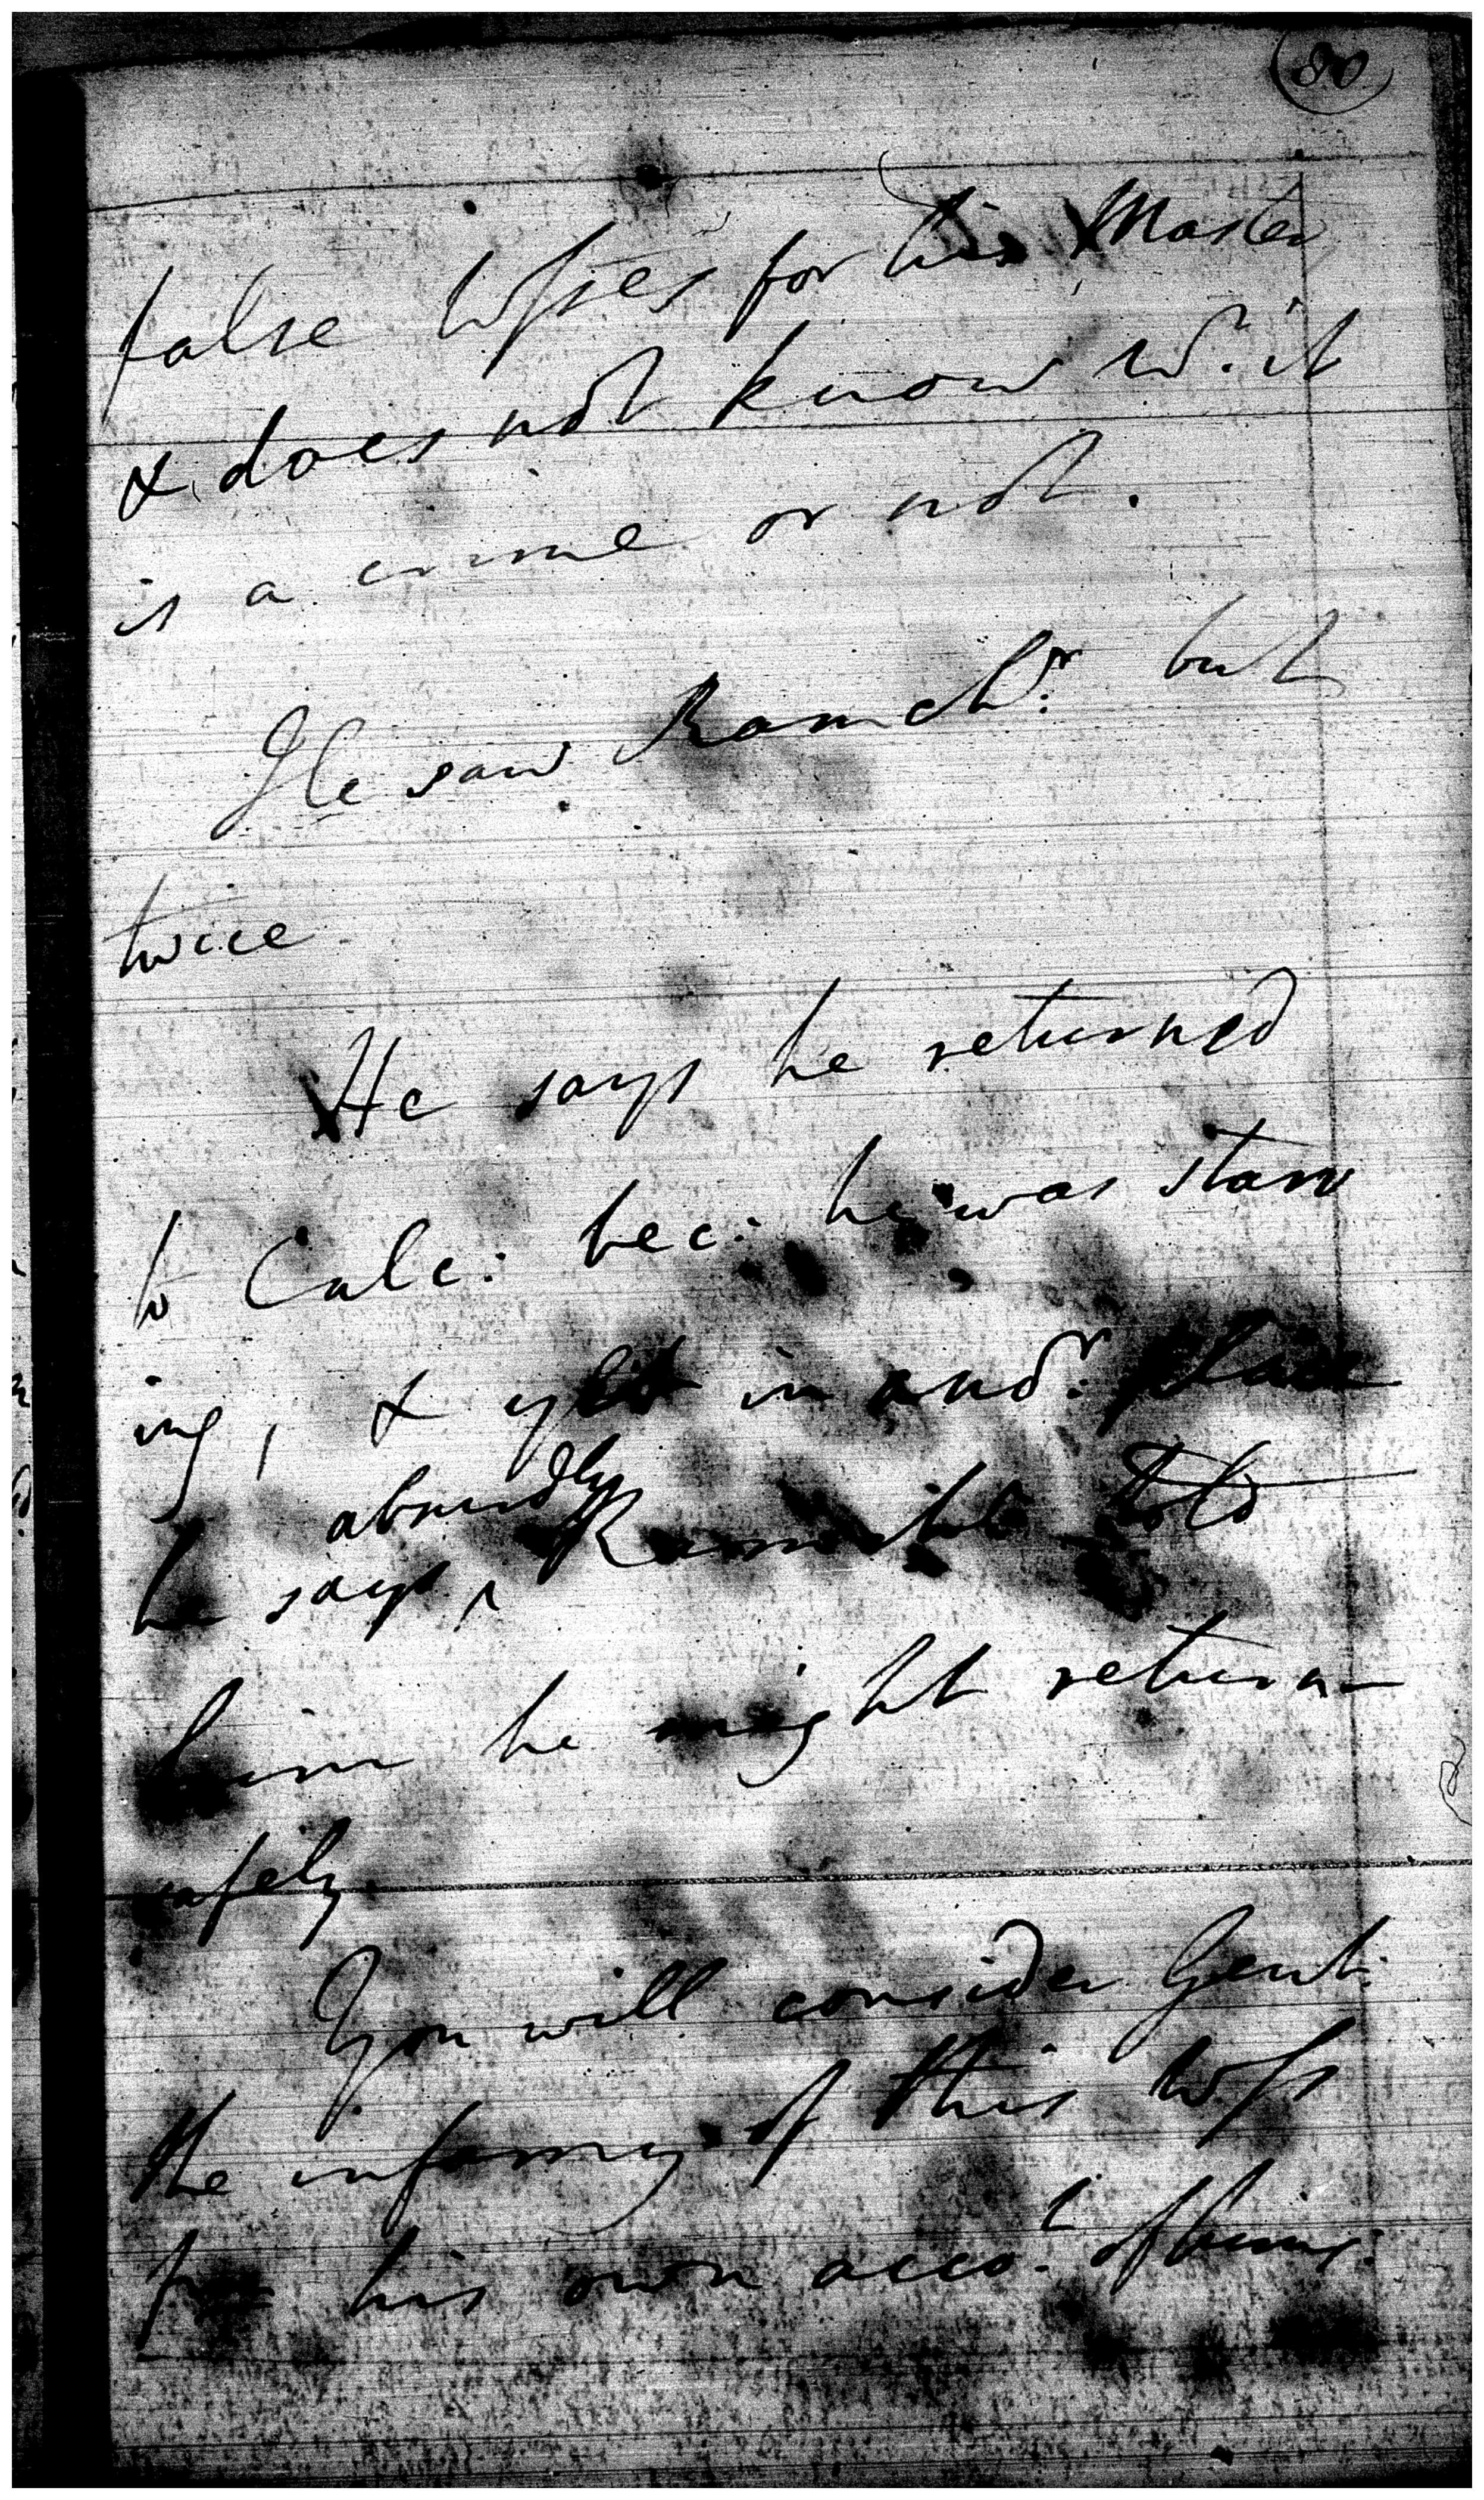 80
false Wsses for his Master
& does not know w. it
is a crime or not.
He saw Ramchr. but
twice
He says he returned
to Calc: bec. he was starv
ing, & yet in anor. place
absurdly
he says ^ told
him he might return
safely.
You will consider Gent:
the infamy of this Wss
his own accot. of